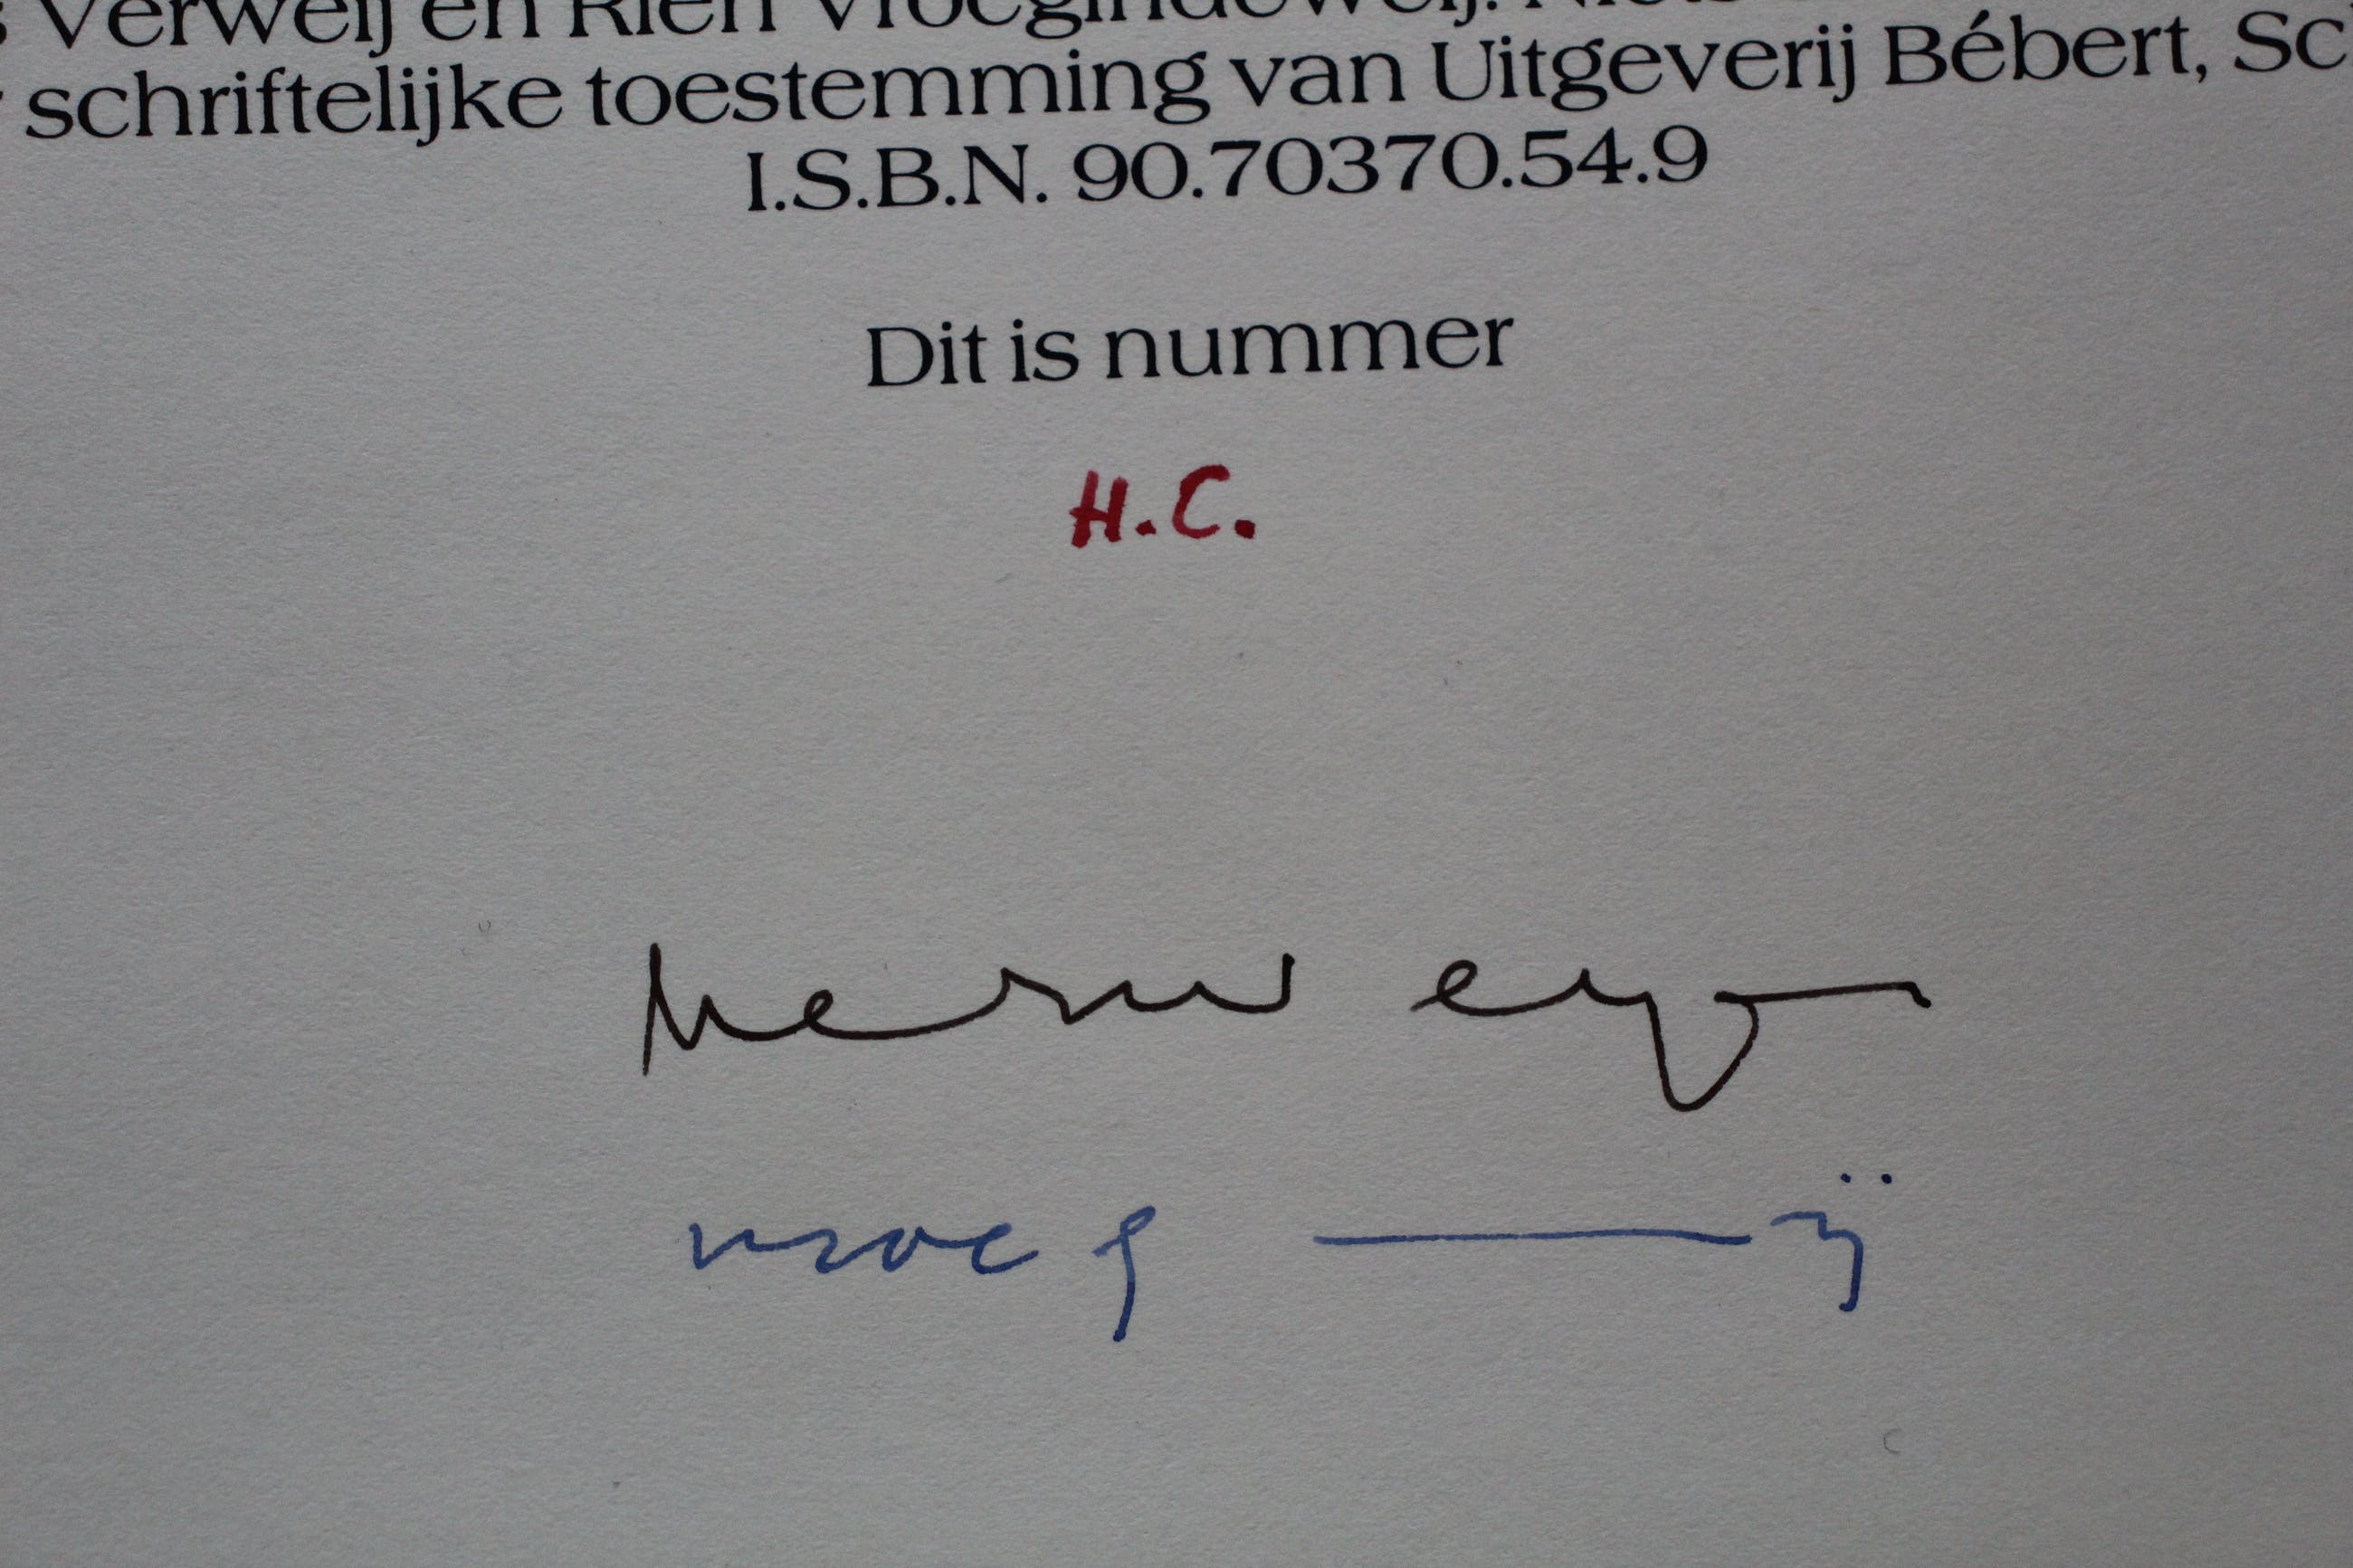 Verweij en Rien Vroegindeweij.
schriftelijke toestemming van Uitgeverij Bébert,
I.S.B.N. 90.70370.54.9
Dit is nummer
H.C.
Verweij
vroeg ij